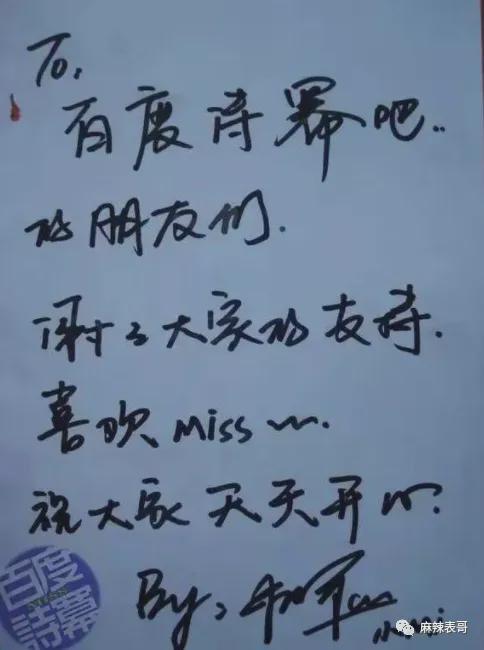 To,
百度诗幂吧..
的朋友们.
谢谢大家的支持.
喜欢Miss ~~.
祝大家天天开心.
By,
百度
MISS
詩幕
麻辣表哥